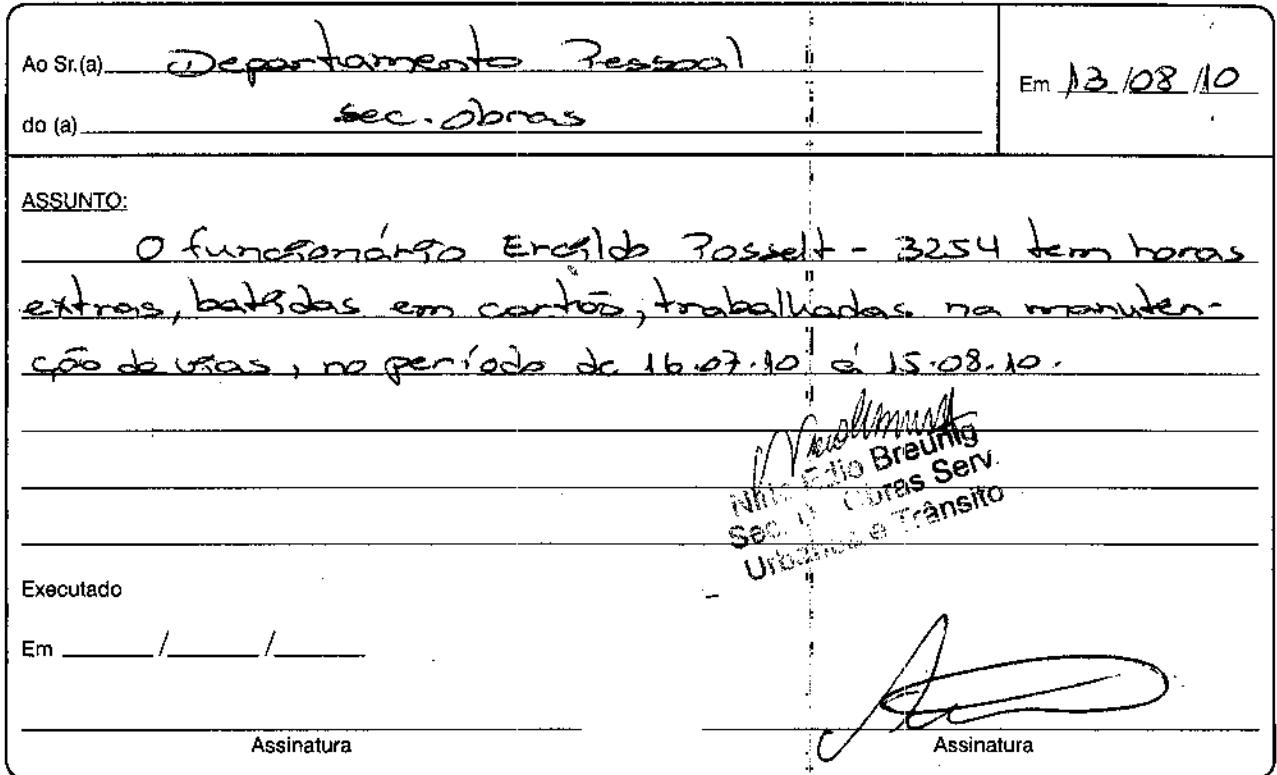 Ao Sr.(a) Departamento Pessoal
Em 13/08/10
do (a) sec. obras
ASSUNTO:
O funcionário Ercildo Posselt - 3254 tem horas
extras, batidas em cartão, trabalhadas na manuten-
ção de vias, no período de 16.07.10 á 15.08.10.
Breunig
Sec. Obras Serv.
Urbanos e Trânsito
Executado
Em ____/____/____
Assinatura
Assinatura